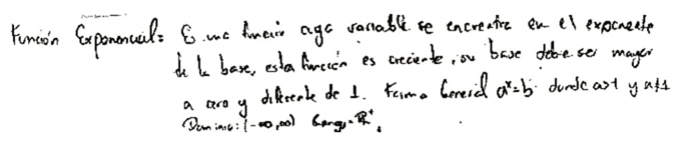 Función Exponencial: Es una función cuya variable se encuentra en el exponente
de la base, esta función es creciente, su base debe ser mayor
a cero y diferente de 1. Forma General a^x=b donde a>1 y a≠1
Dominio: (-∞,∞) Rango=R^+.